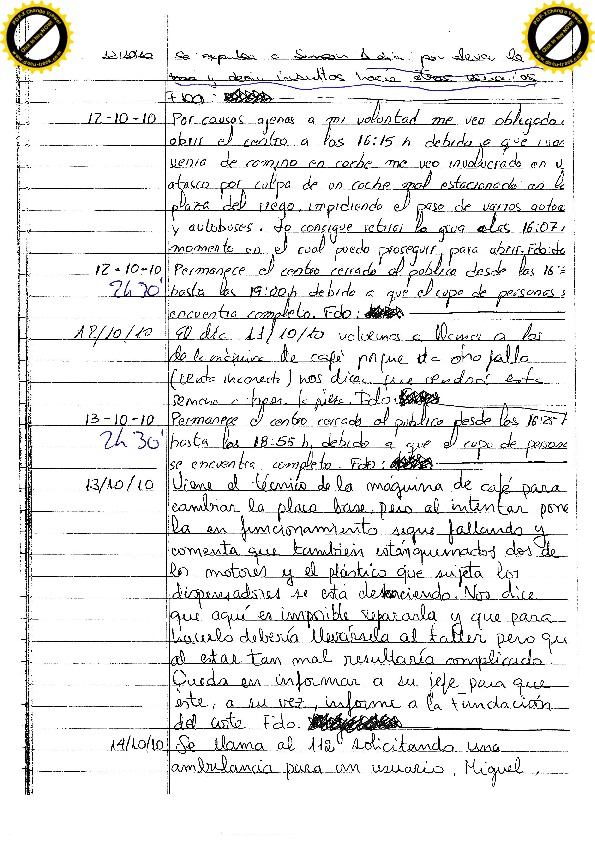 PDF-XChange Viewer
Click to buy NOW!
www.docu-track.com
PDF-XChange Viewer
Click to buy NOW!
www.docu-track.com
12/10/10 Se expulsa a por
y insultos hacia otros usuarios
Fdo:
12-10-10 Por causas ajenas a mi voluntad me veo obligado a
abrir el centro a las 16:15 h debido a que
venía de camino en coche me veo involucrado en
atasco por culpa de un coche mal estacionado en la
plaza del riego, impidiendo el paso de varios autos
y autobuses. Se consigue retirar la grua a las 16:07,
momento en el cual puedo proseguir para abrir. Fdo:
12-10-10 Permanece el centro cerrado al público desde las 16:
2h 30' hasta las 19:00 h debido a que el cupo de personas s
encuentra completo. Fdo:
12/10/10 El día 11/10/10 volvemos a llamar a los
de la máquina de café porque da otro fallo
nos dicen que vendrán esta
semana a Fdo:
13-10-10 Permanece el centro cerrado al público desde las 16:25
2h 30' hasta las 18:55 h, debido a que el cupo de person
se encuentra completo. Fdo:
13/10/10 Viene el técnico de la máquina de café para
cambiar la placa base, pero al intentar pone
la en funcionamiento sigue fallando y
comenta que también están quemados dos de
los motores y el plástico que sujeta los
dispensadores se está deshaciendo. Nos dice
que aquí es imposible repararla y que para
hacerlo debería llevársela al taller pero qu
al estar tan mal resultaría complicado.
Queda en informar a su jefe para que
éste, a su vez, informe a la Fundación
del corte Fdo:
14/10/10 Se llama al 112 solicitando una
ambulancia para un usuario, Miguel,